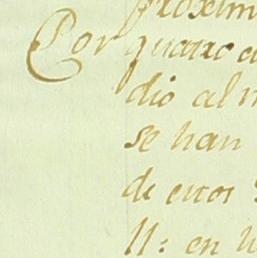 proxim
Por quatro a
dio al m
se han
de estos
11: en